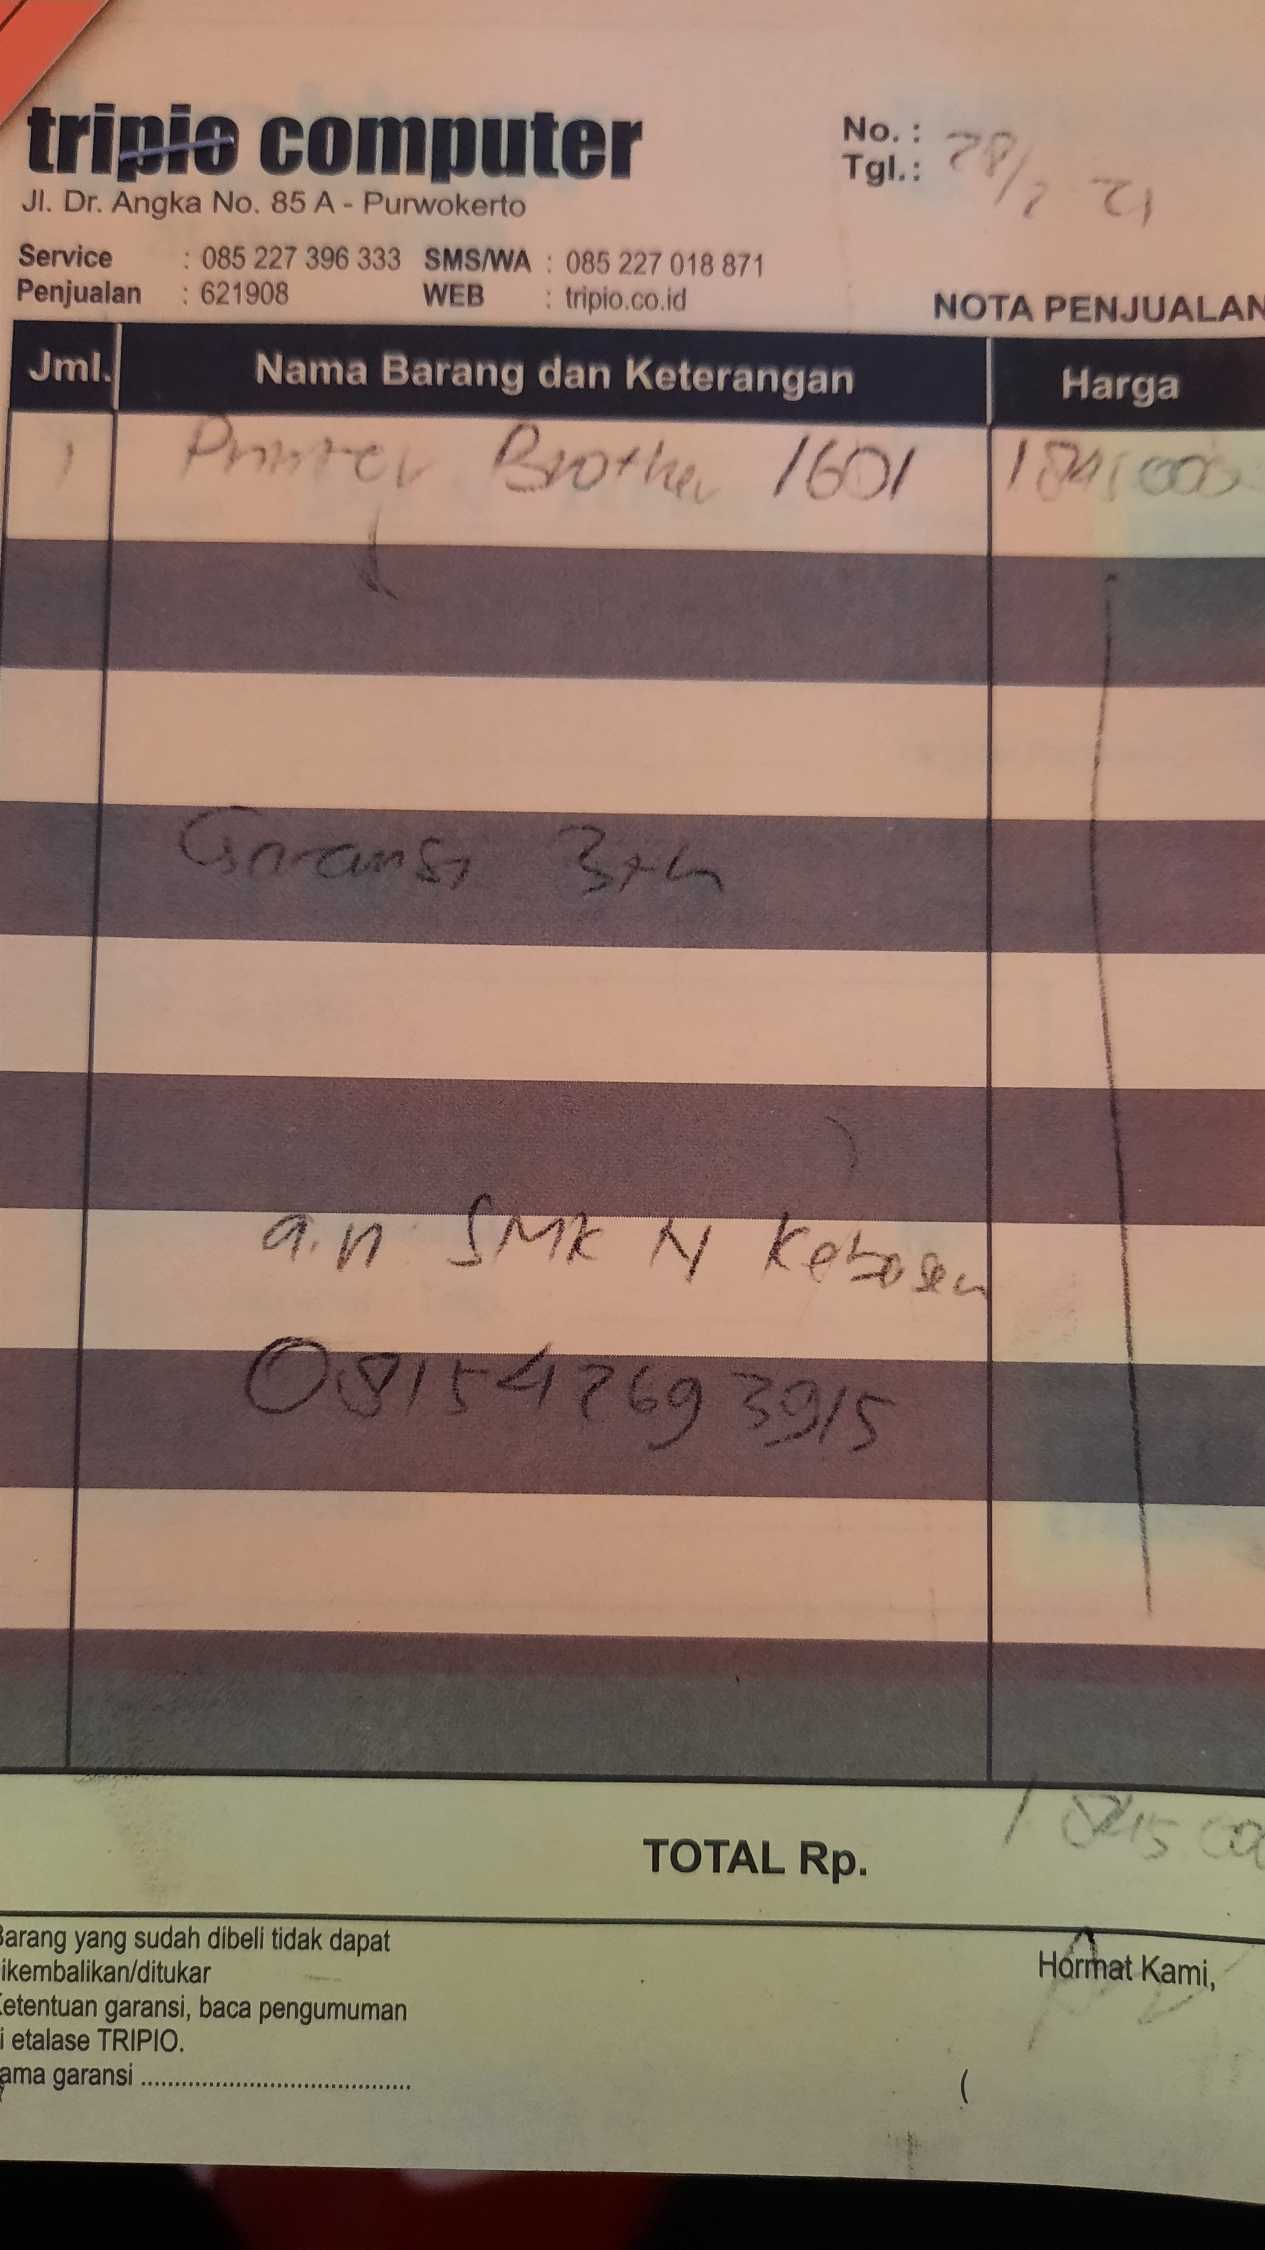 tripio computer
Jl. Dr. Angka No. 85 A - Purwokerto
No. :
Tgl.: 28/ 21
Service : 085 227 396 333 SMS/WA : 085 227 018 871
Penjualan : 621908 WEB : tripio.co.id
NOTA PENJUALAN
Jml. Nama Barang dan Keterangan Harga
1 Printer Brother 1601 1845000
Garansi 3th
a.n SMK N Kebasen
081542693915
TOTAL Rp. 1845.000
Barang yang sudah dibeli tidak dapat
ikembalikan/ditukar
Ketentuan garansi, baca pengumuman
i etalase TRIPIO.
ama garansi ........................................
Hormat Kami,
(